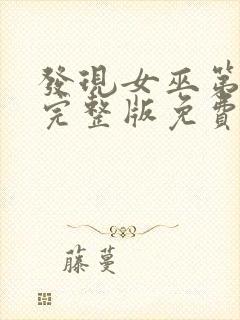 發現女巫第
完整版免費
藤蔓